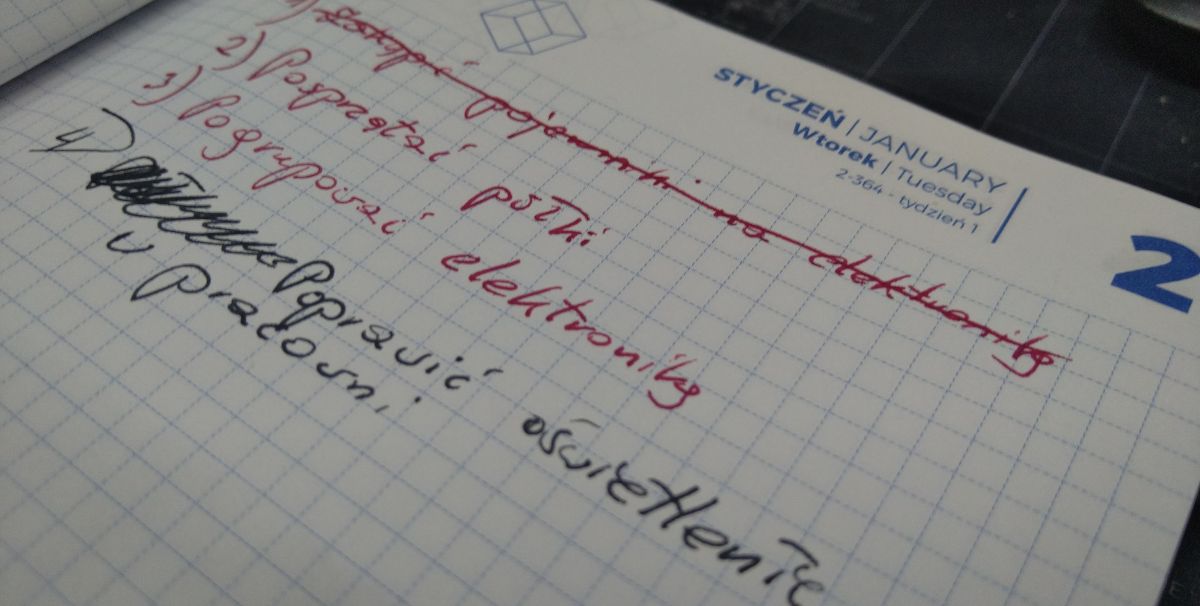 STYCZEŃ | JANUARY
Wtorek | Tuesday
2-364 - tydzień 1
2
1) Zakupić pojemniki na elektronikę
2) Posprzątać półki
3) Pogrupować elektronikę
4) Poprawić oświetlenie
w pracowni